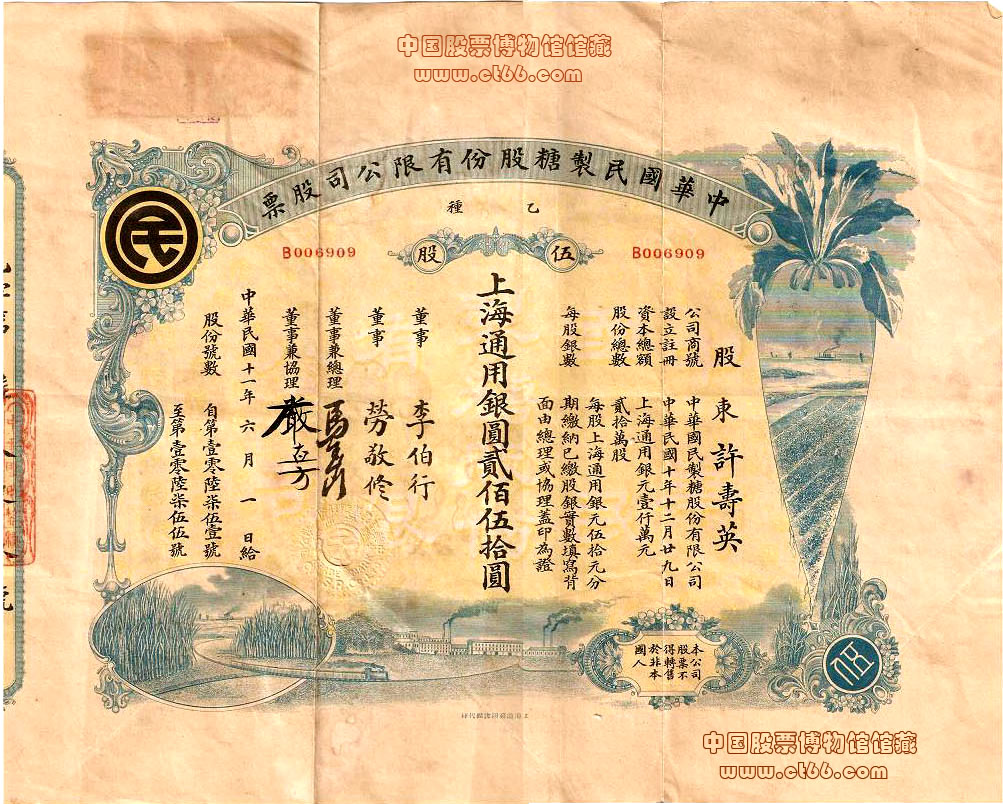 中国股票博物馆馆藏
www.ct66.com
中華國民製糖股份有限公司股票
乙種
伍股
B006909
B006909
民
股東 許壽英
公司商號 中華國民製糖股份有限公司
設立註冊 中華民國十年十二月廿九日
資本總額 上海通用銀元壹仟萬元
股份總數 貳拾萬股
每股銀數 每股上海通用銀元伍拾元分
期繳納已繳股銀實數填寫背
面由總理或協理蓋印為證
上海通用銀圓貳佰伍拾圓
董事 李伯行
董事 勞敬修
董事兼總理 馬玉山
董事兼協理 嚴直方
中華民國十一年六月一日給
股份號數 自第壹零陸柒伍壹號
至第壹零陸柒伍伍號
本公司
股票不
得轉售
於非本
國人
中国股票博物馆馆藏
www.ct66.com